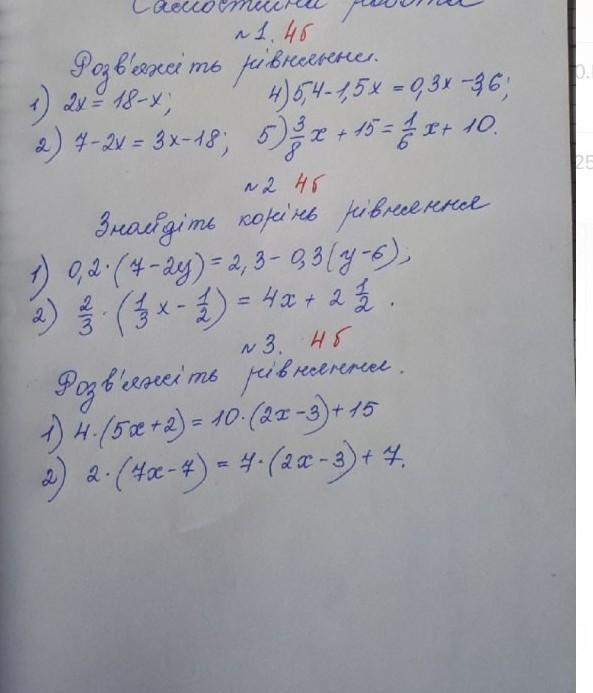 Самостійна робота
№1. 4б
Розв'яжіть рівняння.
1) 2x = 18-x; 4) 5,4-1,5x = 0,3x -3,6;
2) 7-2x = 3x-18; 5) 3/8 x + 15 = 1/6 x + 10.
№2 4б
Знайдіть корінь рівняння
1) 0,2·(7-2y) = 2,3-0,3(y-6);
2) 2/3 · (1/3 x - 1/2) = 4x + 2 1/2.
№3. 4б
Розв'яжіть рівняння.
1) 4·(5x+2) = 10·(2x-3)+15
2) 2·(7x-7) = 7·(2x-3)+7.